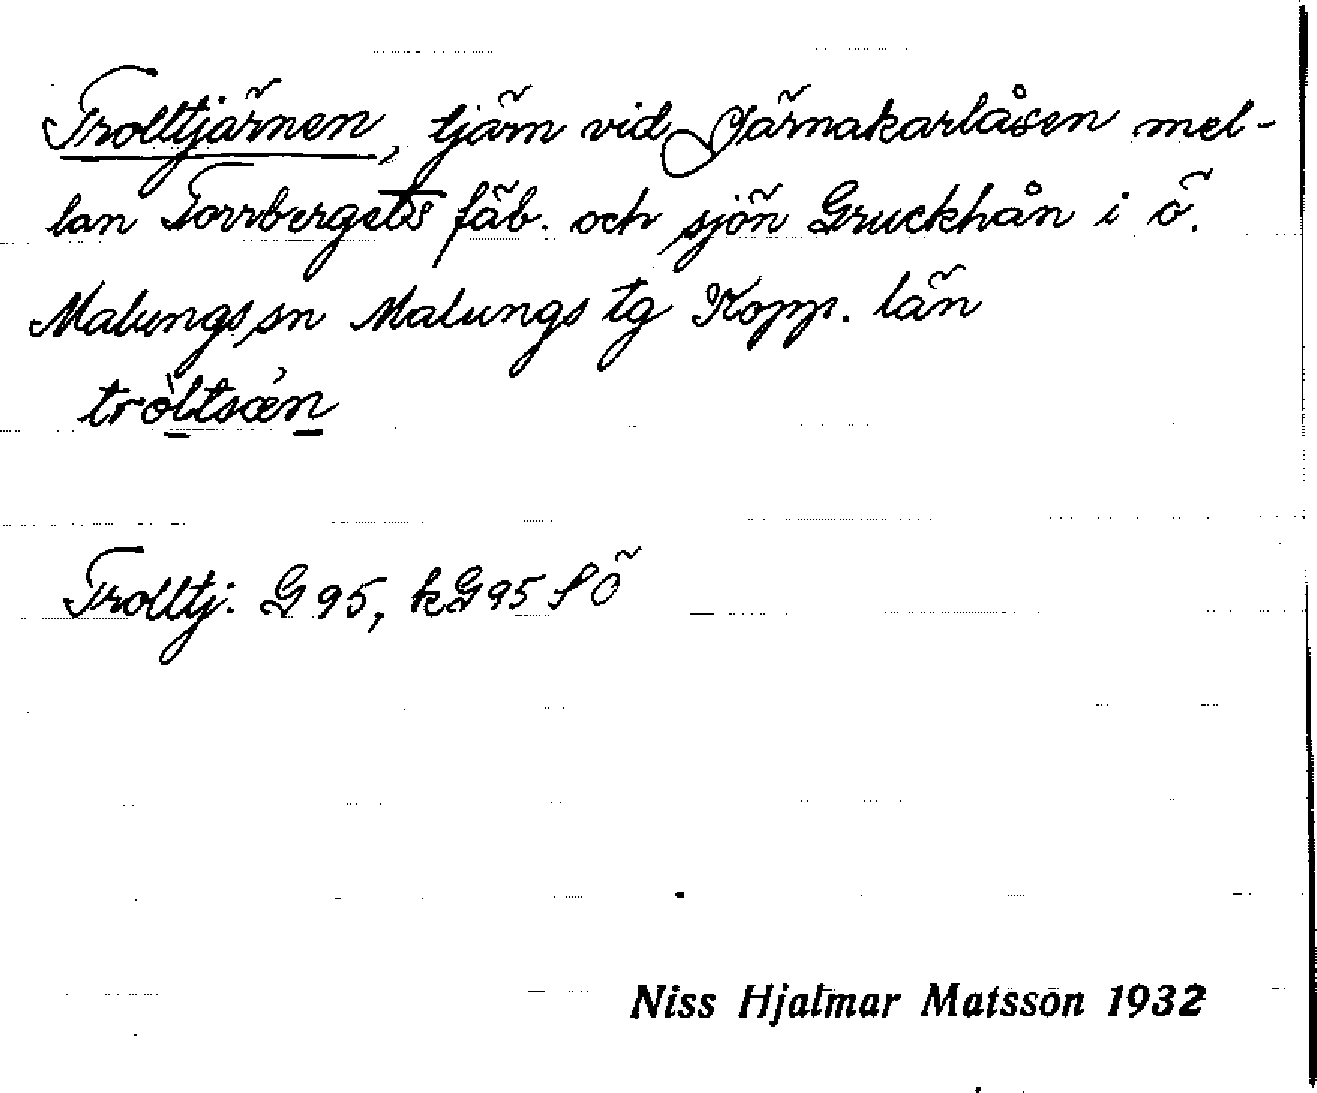 Trolltjärnen, tjärn vid Järnakarlåsen mel-
lan Torrbergets fäb. och sjön Gruckhån i ö.
Malungs sn Malungs tg Kopp. län
tròltsǽn
Trolltj. G 95, kG 95 S Ö
Niss Hjalmar Matsson 1932